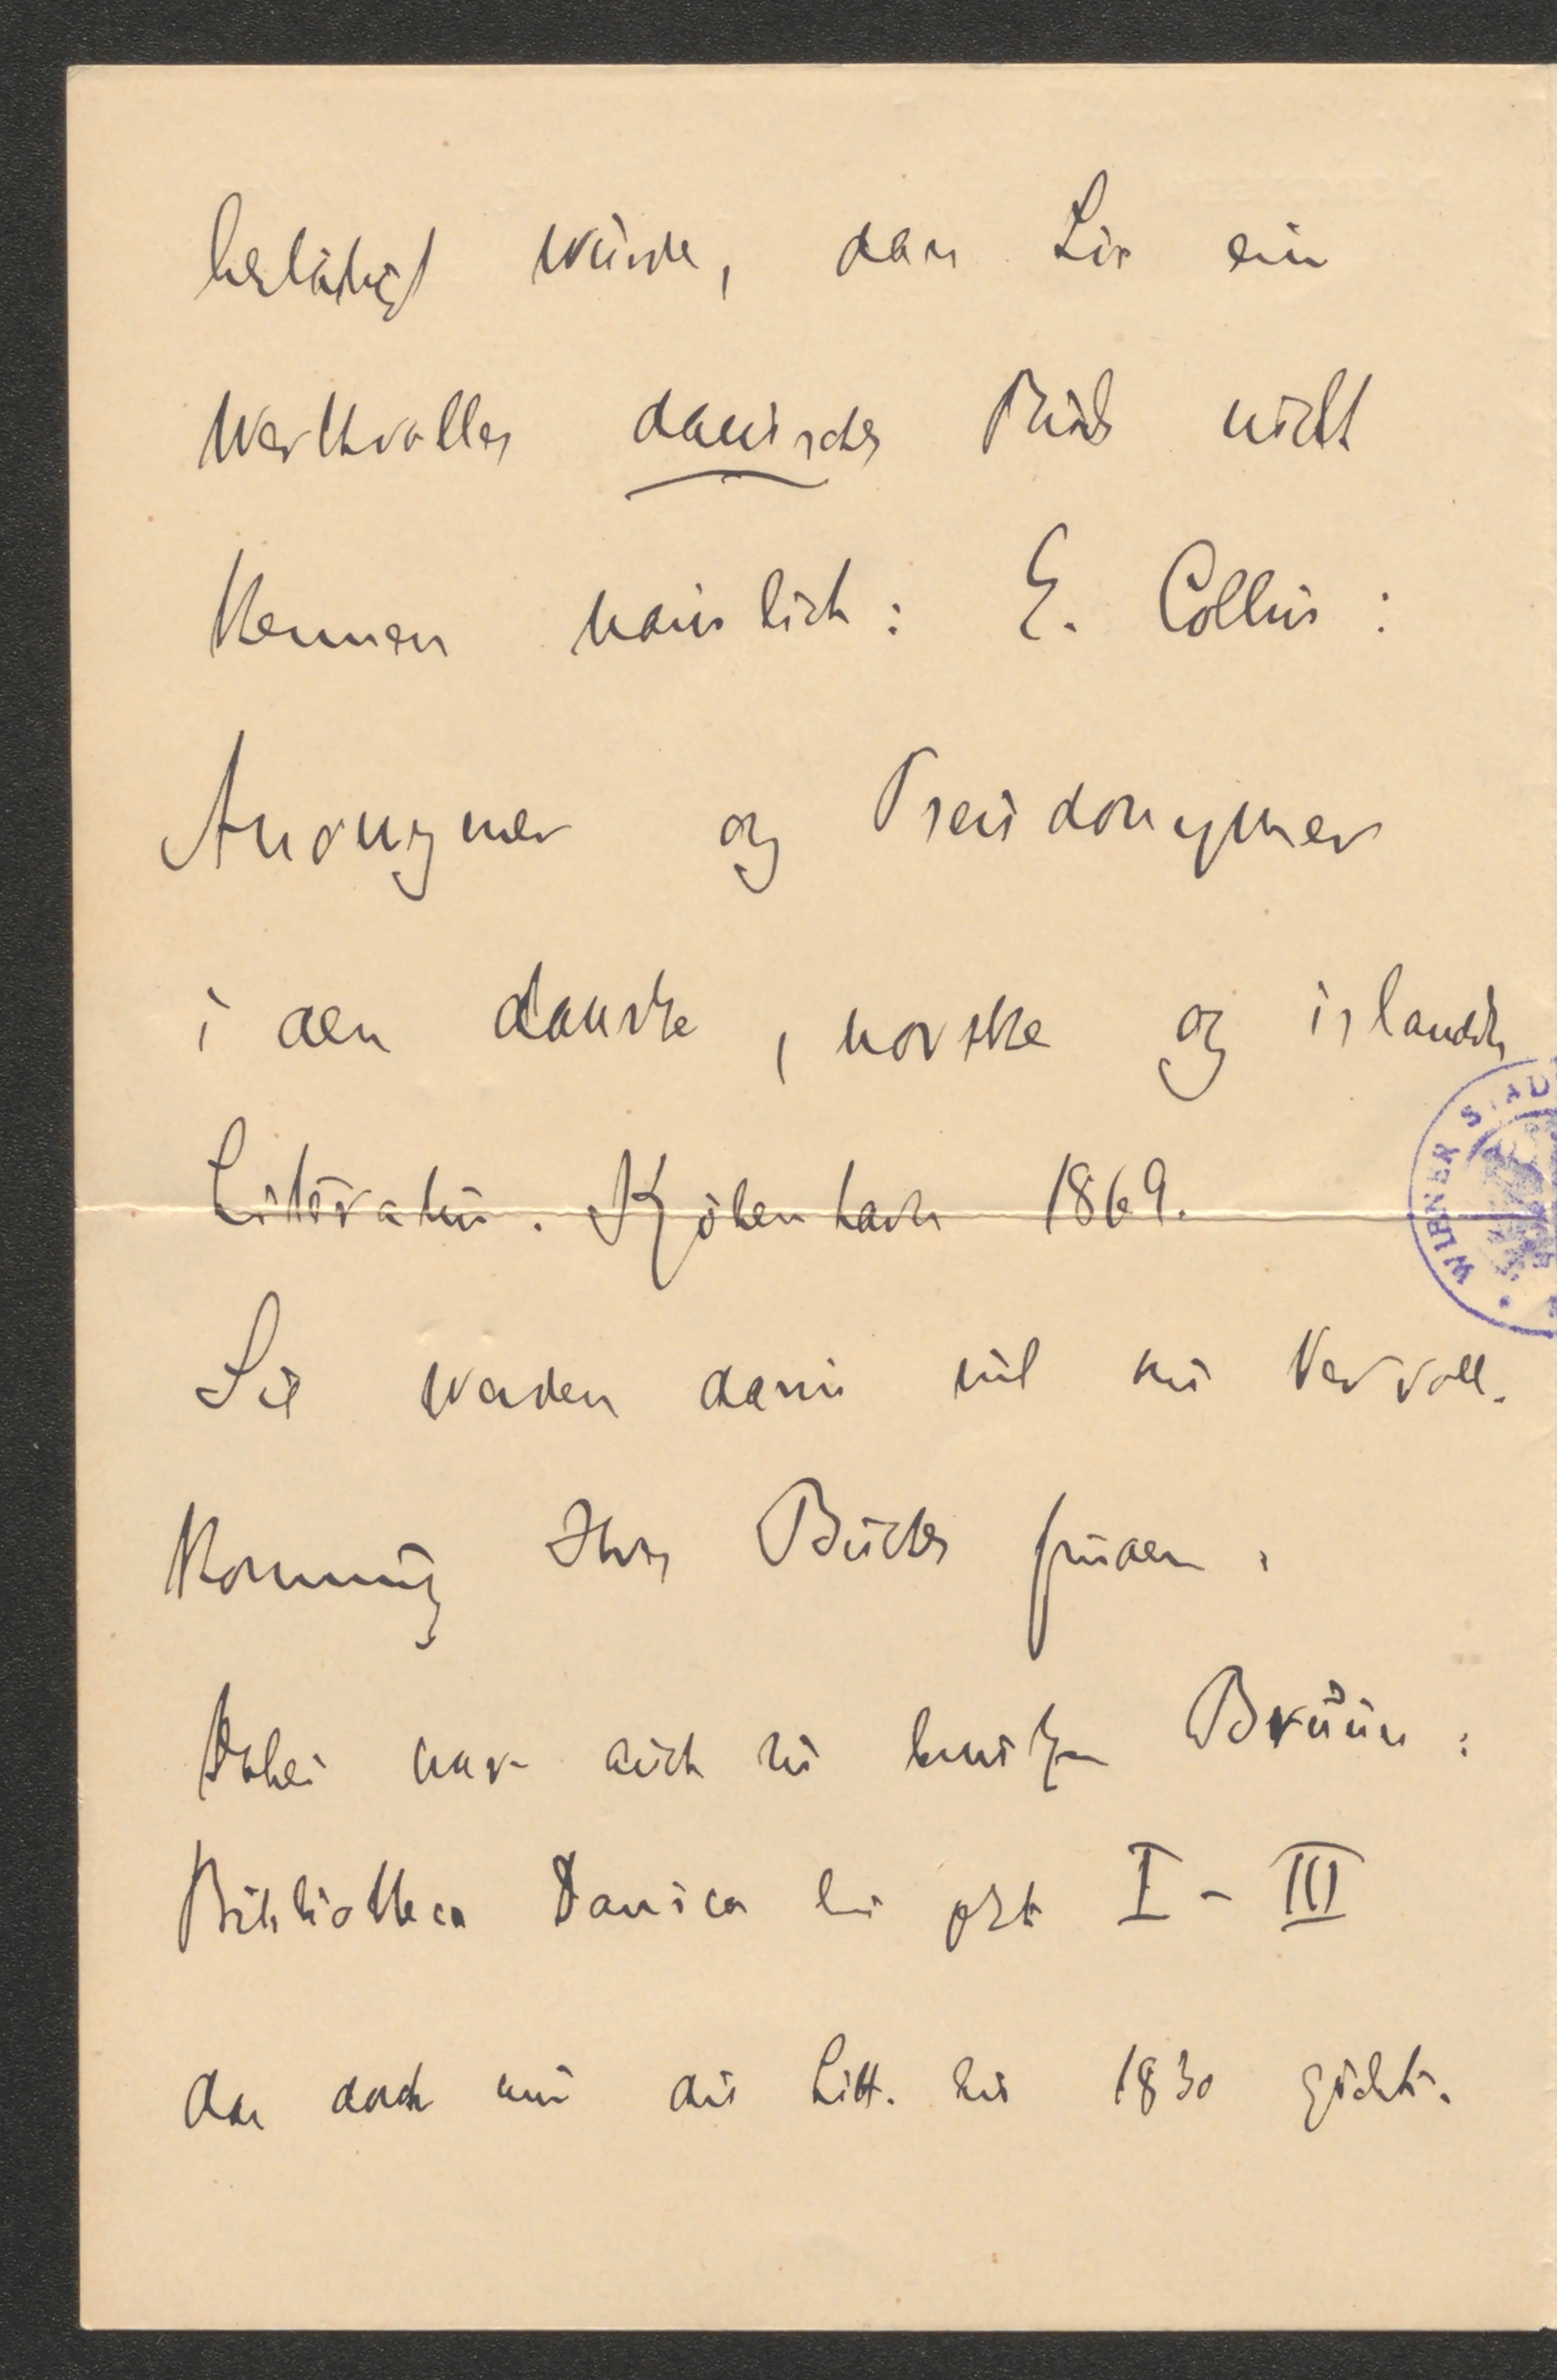 bestätigt würde, dass Sie ein
werthvolles dänisches Buch nicht
kennen nämlich: E. Collin:
Anonymer og Pseudonymer
i den danske, norske og islandsk
Literatur. Kjöbenhavn 1869.
Sie werden darin viel zur Vervoll-
komnung Ihres Buches finden.
Dabei war auch zu benützen Bruun:
Bibliotheca Danica bis jetzt I - III
das doch nur die Litt. bis 1830
WIENER STAD